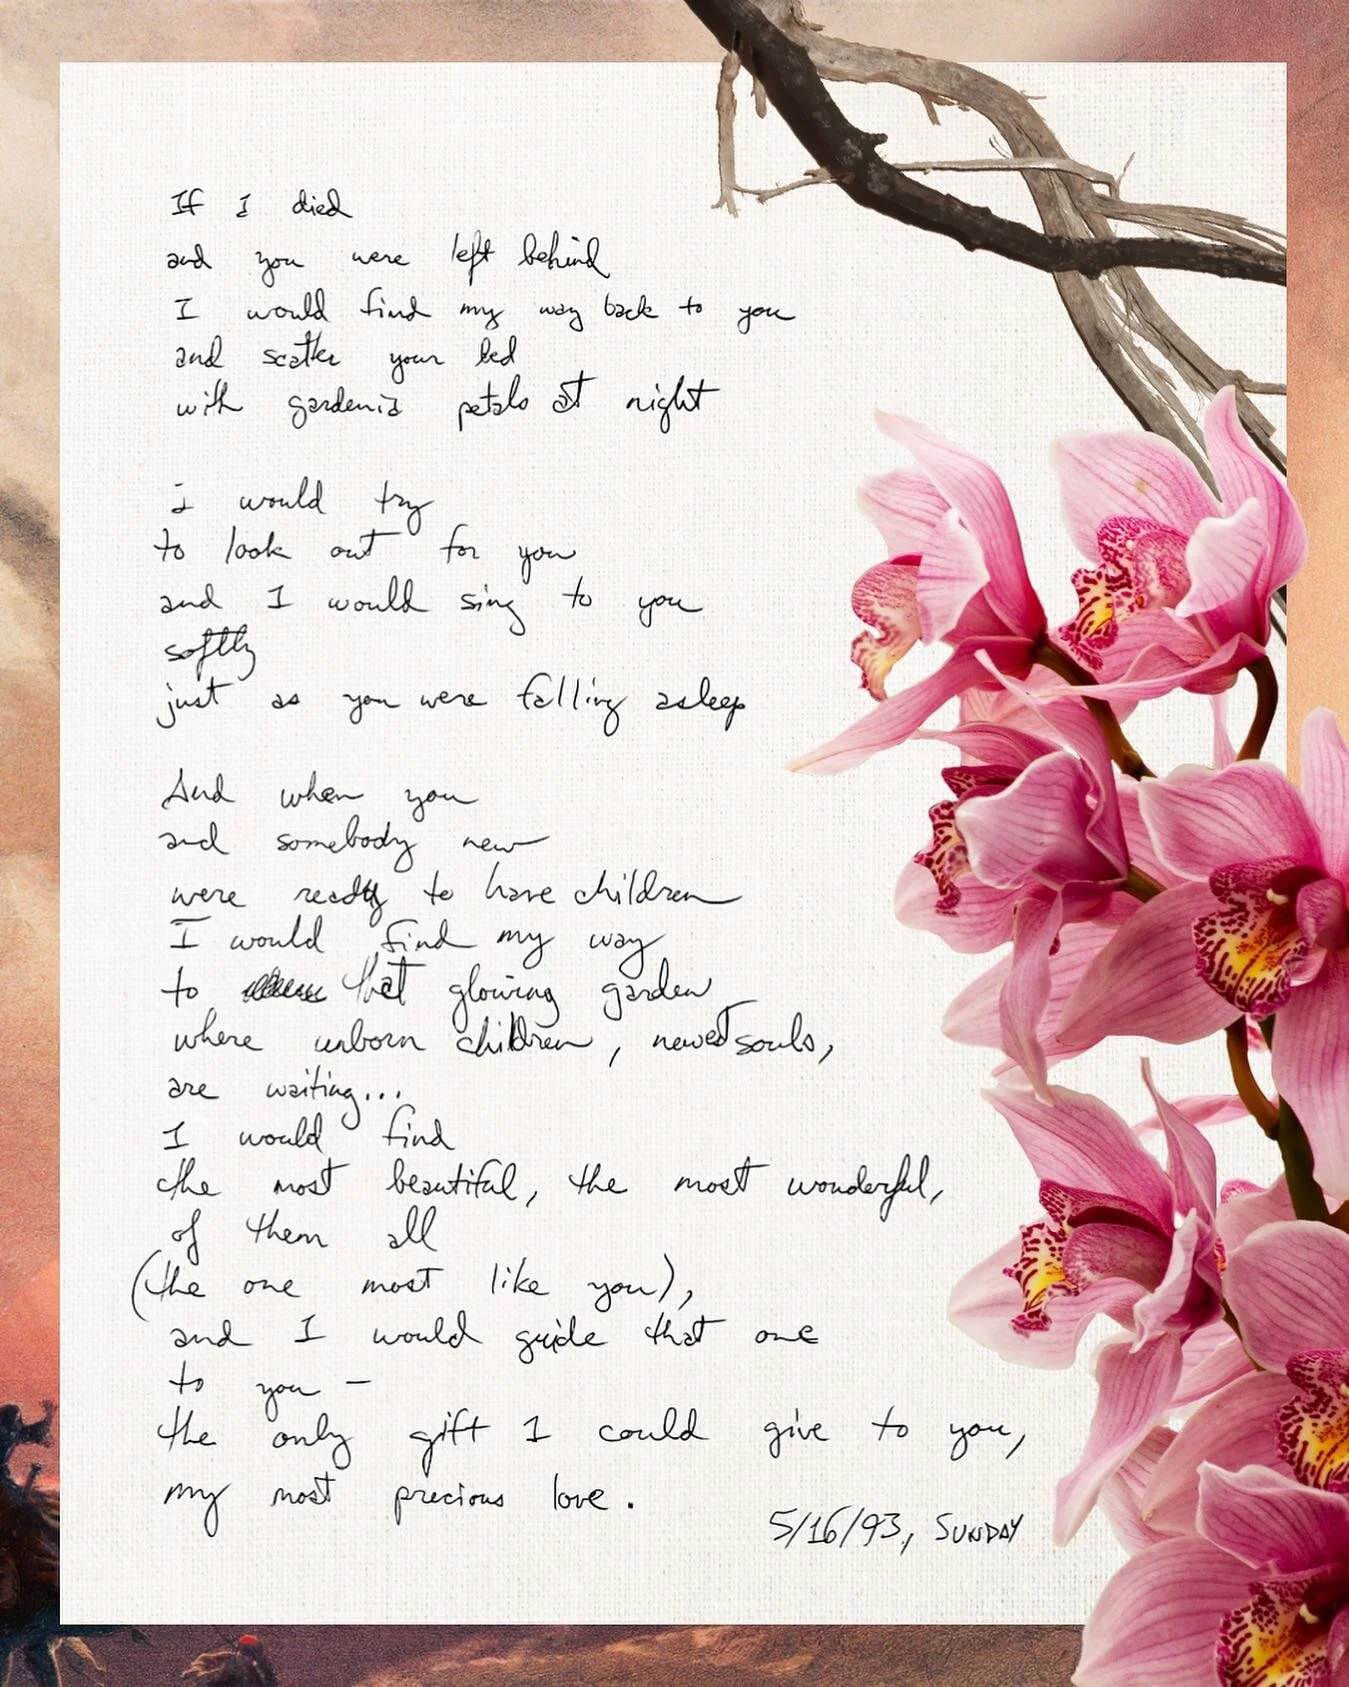 If I died
and you were left behind
I would find my way back to you
and scatter your bed
with gardenia petals at night
I would try
to look out for you
and I would sing to you
softly
just as you were falling asleep
And when you
and somebody new
were ready to have children
I would find my way
to that glowing garden
where unborn children, newest souls,
are waiting...
I would find
the most beautiful, the most wonderful,
of them all
(the one most like you),
and I would guide that one
to you —
the only gift I could give to you,
my most precious love.
5/16/93, SUNDAY